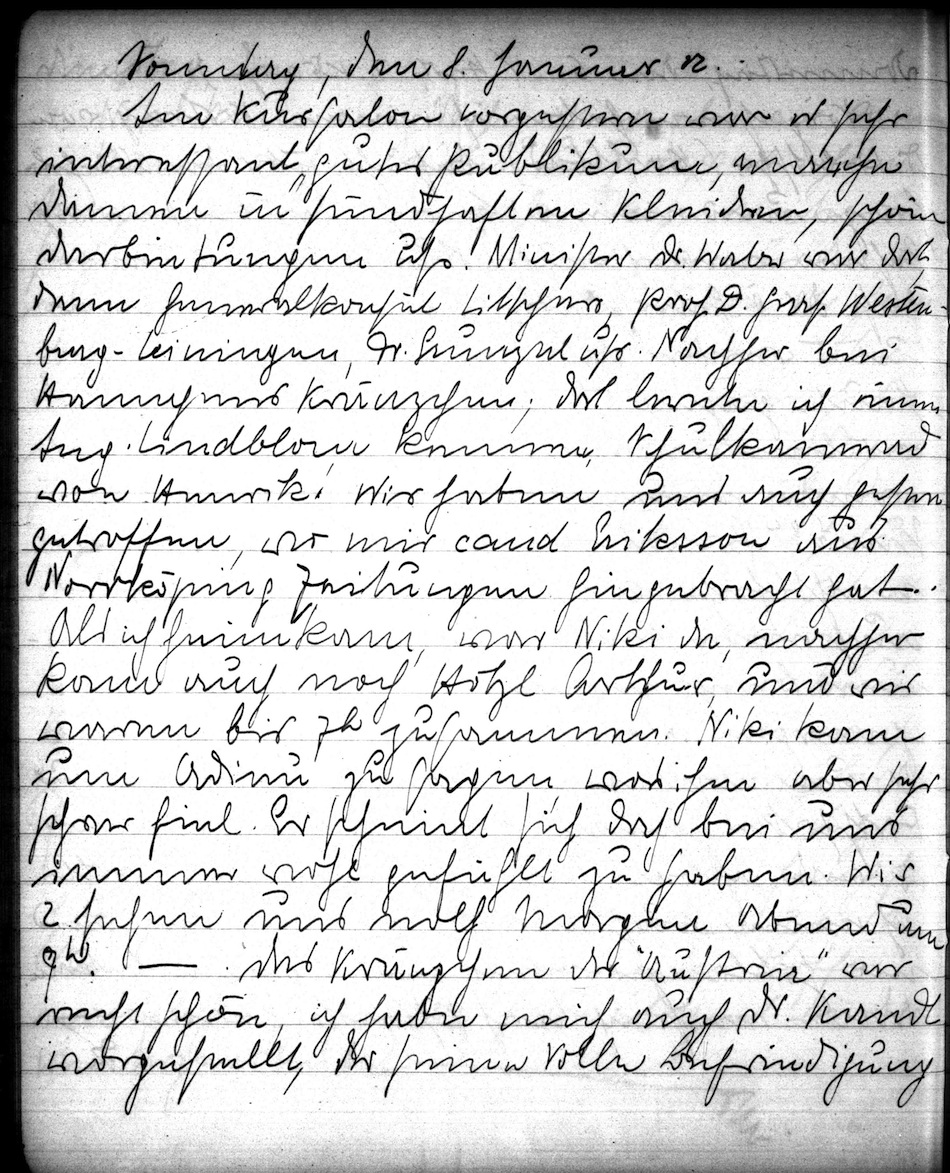 Sonntag, den 8. Januar 22.
Im Kursalon vorgestern war es sehr
interessant, gutes Publikum, manche
Damen in sündhaften Kleidern, schöne
Darbietungen usf. Minister Dr. Waber war dort
dann Generalkonsul, Prof. D. Graf. Westen-
burg-Leiningen, Dr. usf. Nachher bei
Hannchens Kränzchen, dort lernte ich einen
Ing. Lindblom kennen, Schulkamerad
von Henrik. Wir haben uns auch gestern
getroffen, wo mir cand Eriksson aus
Norrköping Zeitungen hingebracht hat.
Als ich heimkam, war Niki da, nachher
kam auch noch Hötzl Arthur, und wir
waren bis 7h zusammen. Niki kam
um Adieu zu sagen, was ihm aber sehr
schwer fiel. Er scheint sich doch bei uns
immer wohl gefühlt zu haben. Wir
2 sehen uns noch morgen Abend um
9h. — Das Kränzchen der "Austria" war
recht schön, ich habe mich auch Dr. Kandl
vorgestellt, der seine volle Befriedigung